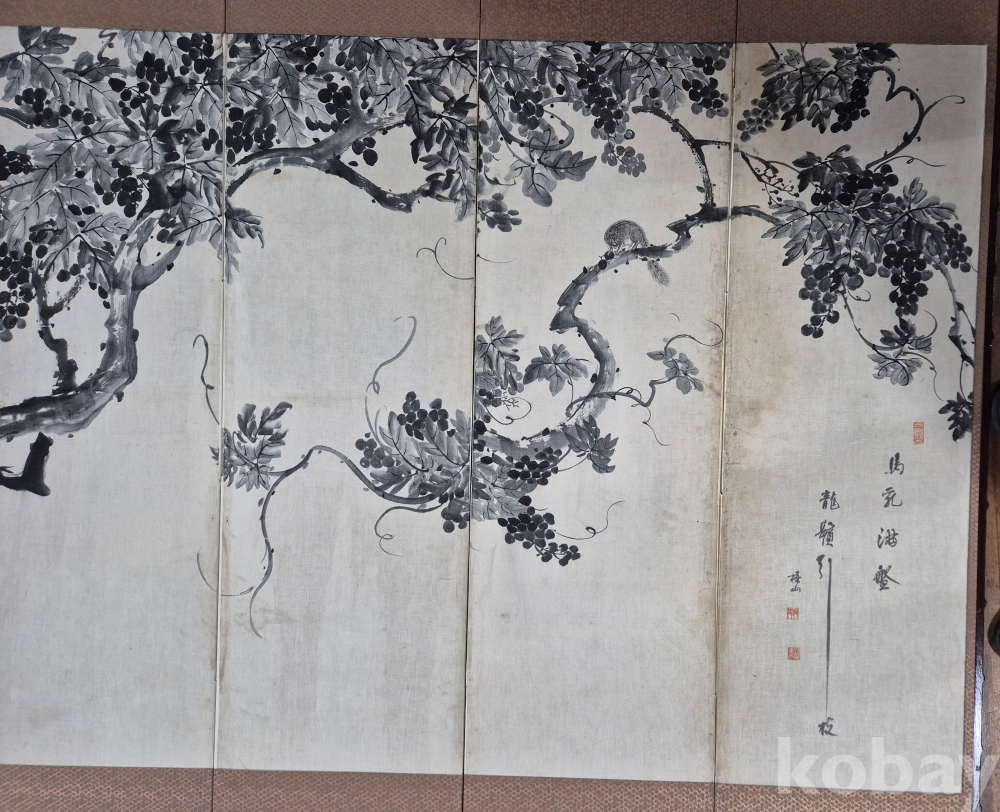 馬乳滿盤
龍鬚引枝
山
kobay